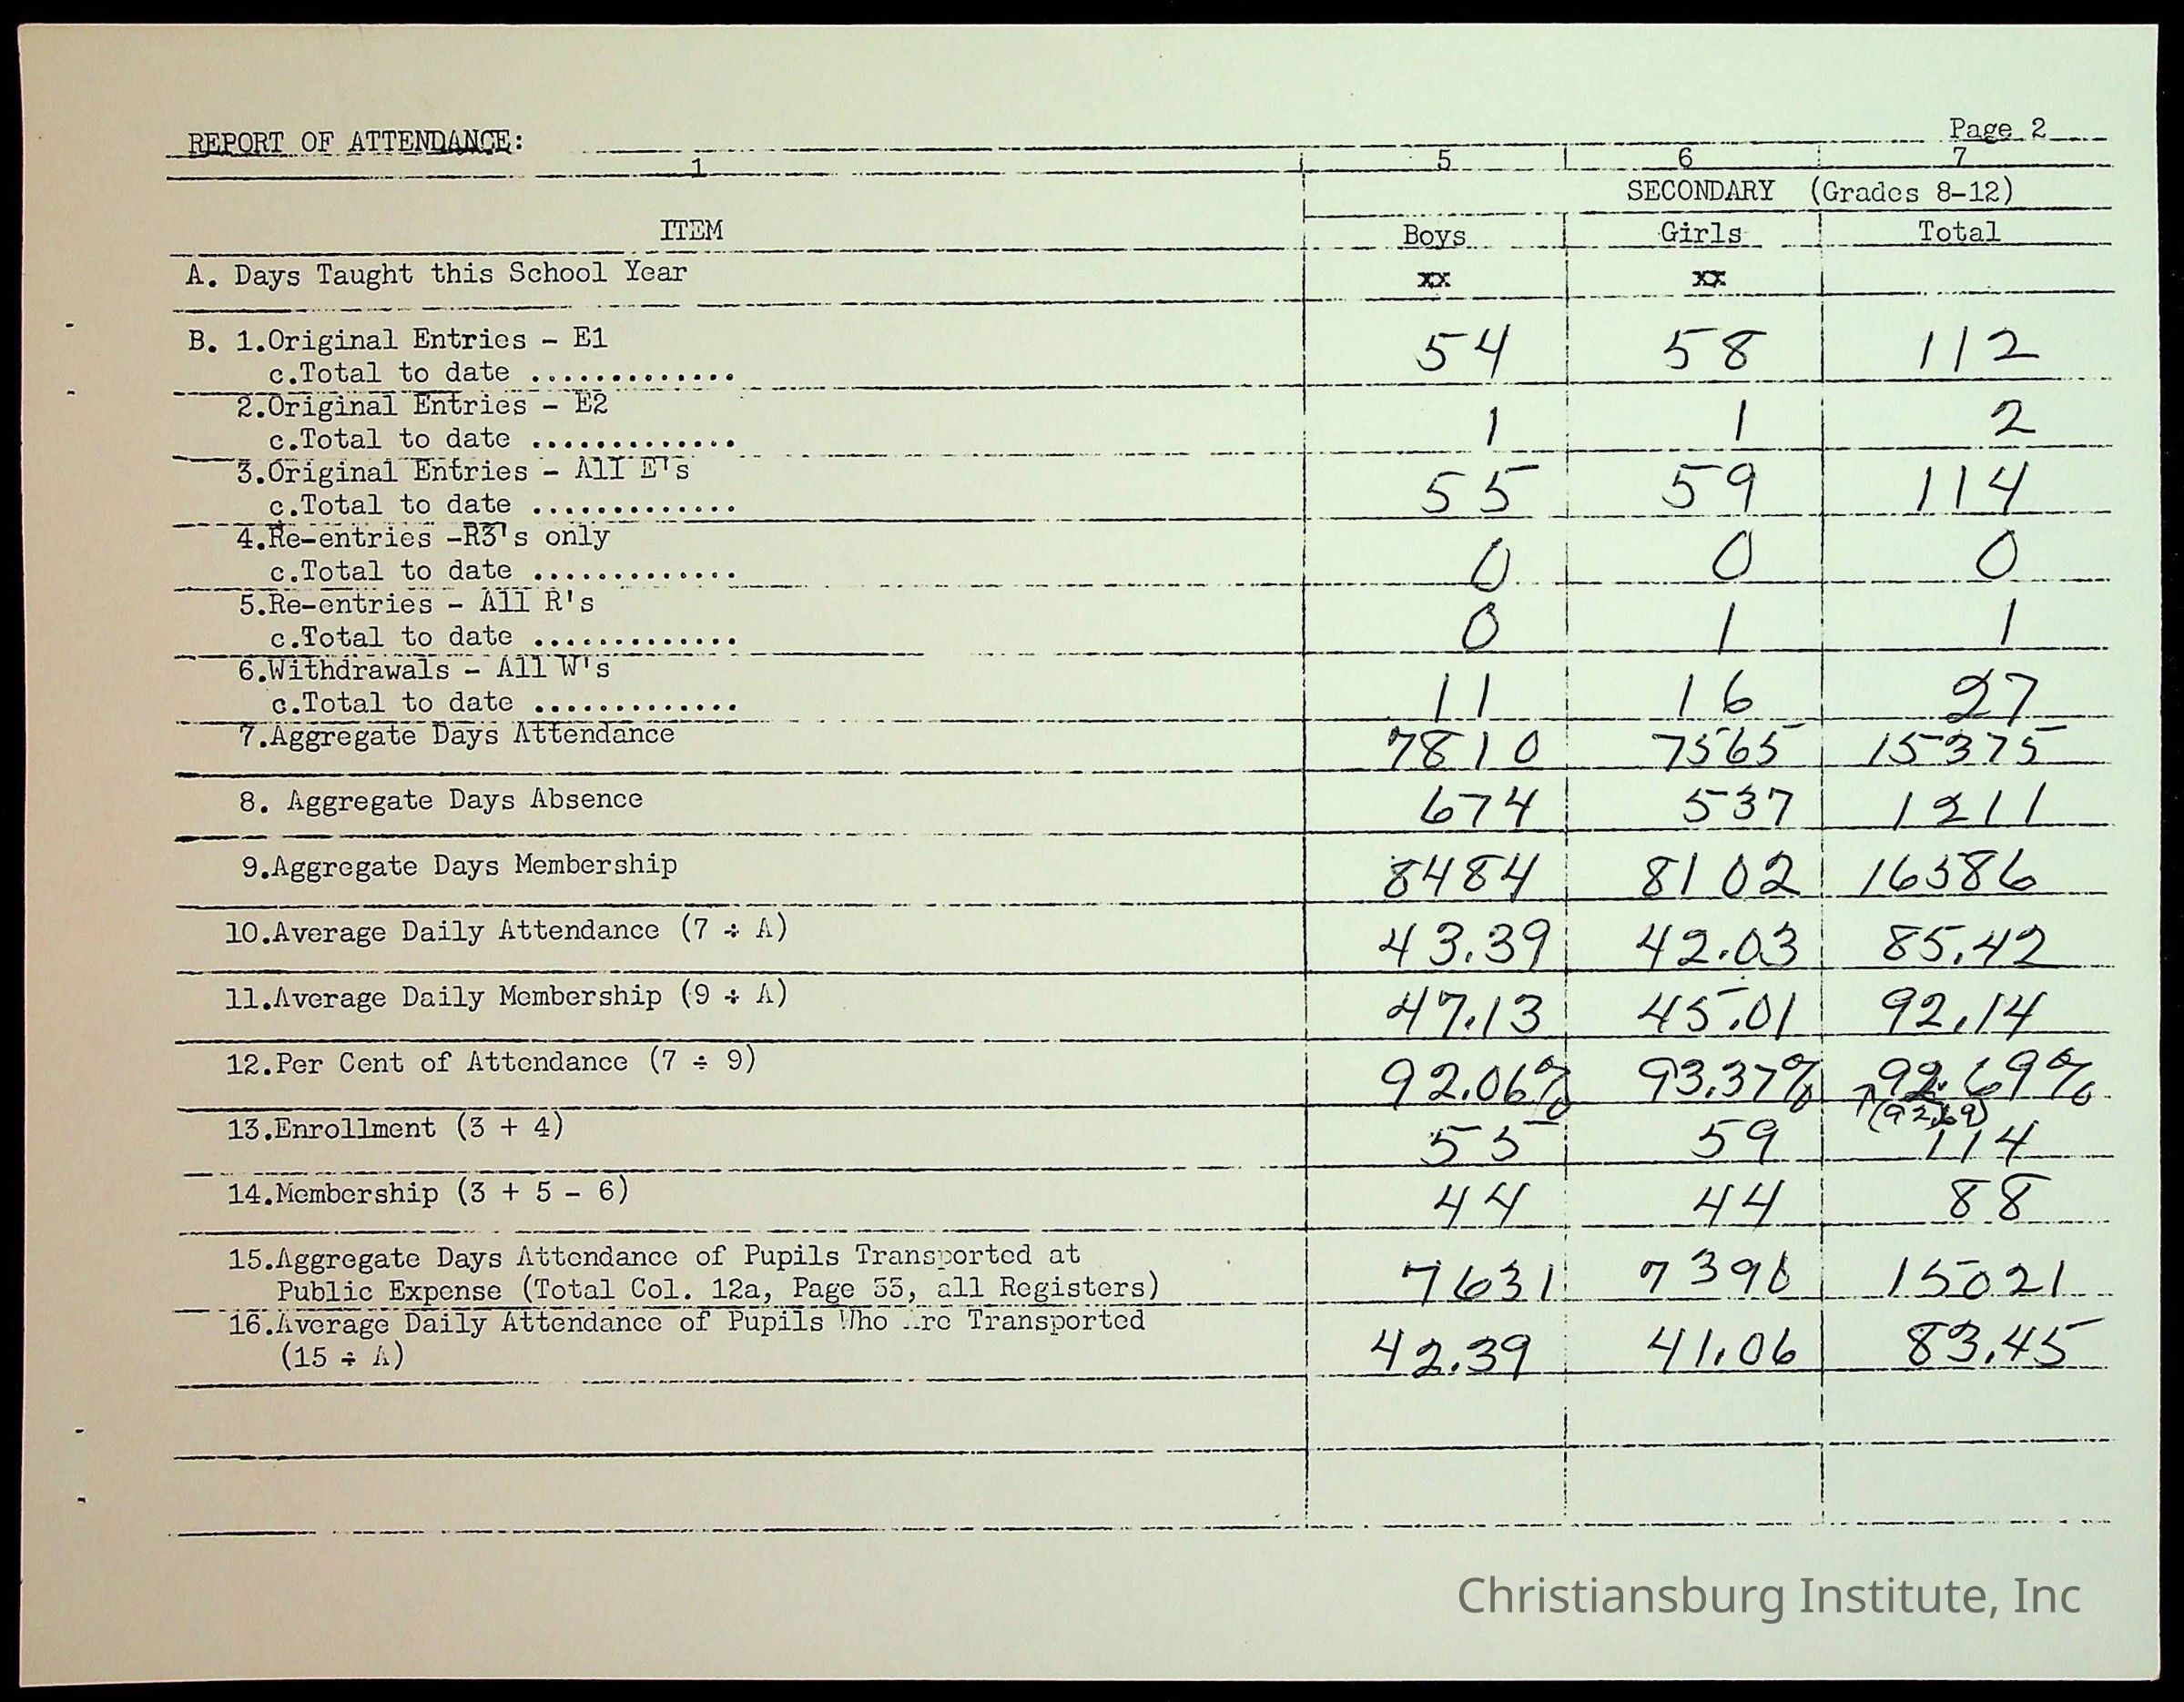 REPORT OF ATTENDANCE: Page 2
1 5 6 7
SECONDARY (Grades 8-12)
ITEM Boys Girls Total
A. Days Taught this School Year xx xx
B. 1.Original Entries - E1
c.Total to date ............. 54 58 112
2.Original Entries - E2
c.Total to date ............. 1 1 2
3.Original Entries - All E's
c.Total to date ............. 55 59 114
4.Re-entries -R3's only
c.Total to date ............. 0 0 0
5.Re-entries - All R's
c.Total to date ............. 0 1 1
6.Withdrawals - All W's
c.Total to date ............. 11 16 27
7.Aggregate Days Attendance 7810 7565 15375
8. Aggregate Days Absence 674 537 1211
9.Aggregate Days Membership 8484 8102 16586
10.Average Daily Attendance (7 ÷ A) 43.39 42.03 85.42
11.Average Daily Membership (9 ÷ A) 47.13 45.01 92.14
12.Per Cent of Attendance (7 ÷ 9) 92.06% 93.37% 92.69%
(92.69)
13.Enrollment (3 + 4) 55 59 114
14.Membership (3 + 5 - 6) 44 44 88
15.Aggregate Days Attendance of Pupils Transported at
Public Expense (Total Col. 12a, Page 53, all Registers) 7631 7390 15021
16.Average Daily Attendance of Pupils Who Are Transported
(15 ÷ A) 42.39 41.06 83.45
Christiansburg Institute, Inc